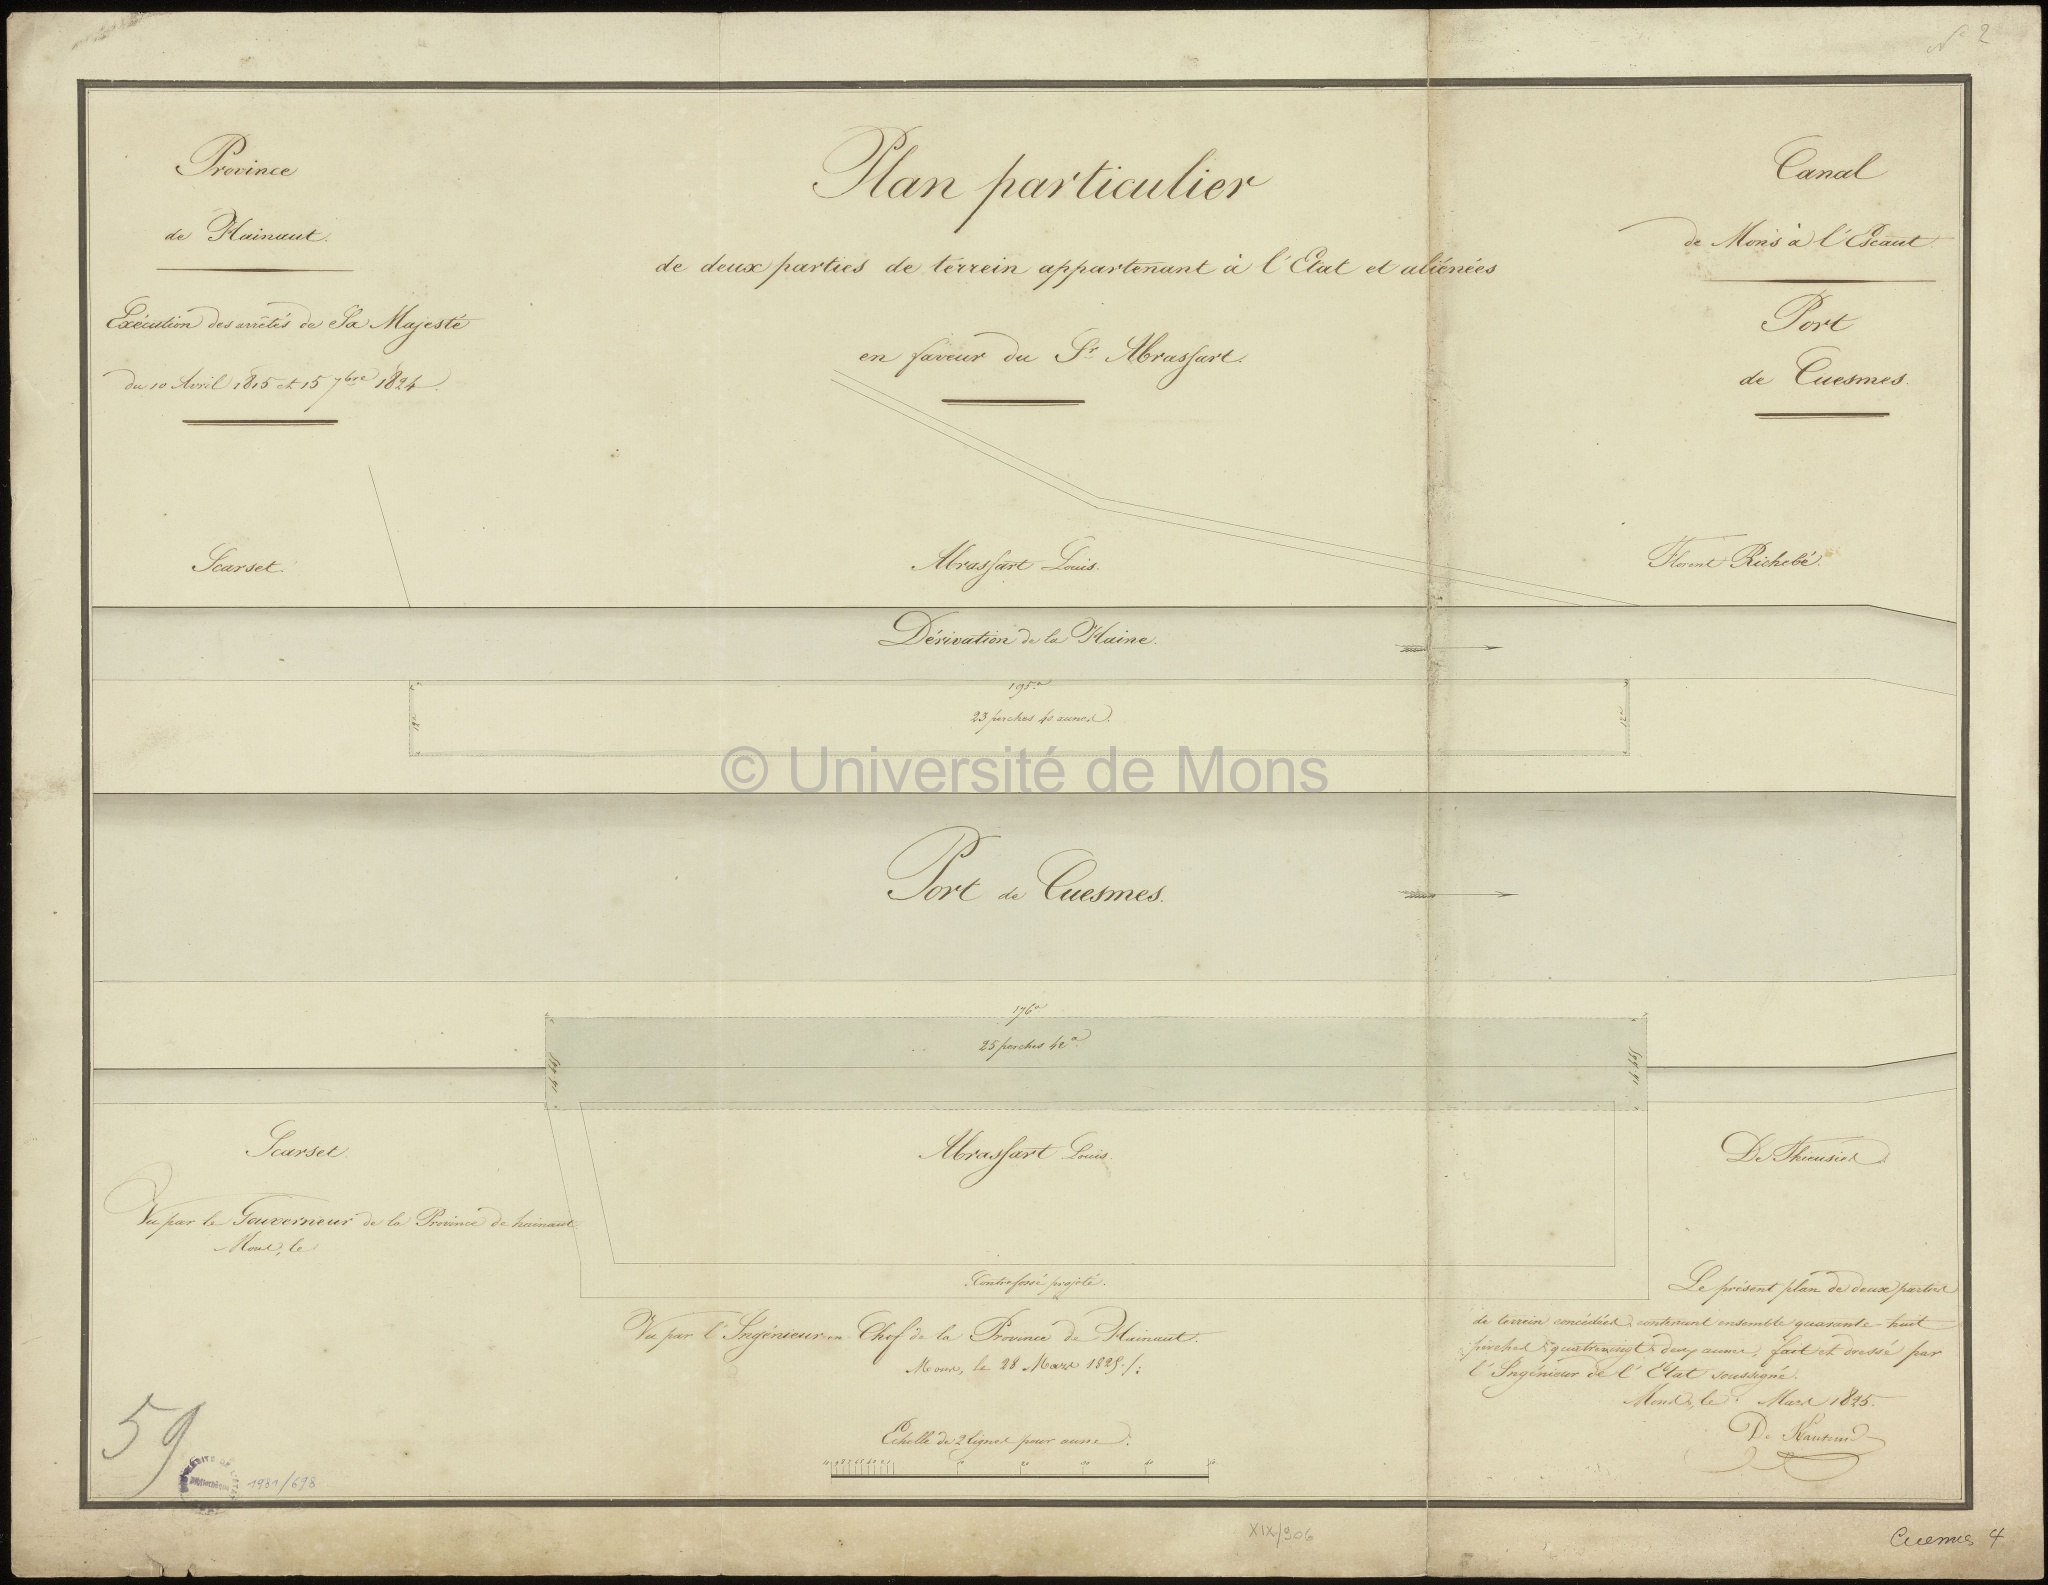 N° 2
Province
de Hainaut.
Exécution des arrêtés de Sa Majesté
du 10 Avril 1815 et 15 7bre 1824.
Plan particulier
de deux parties de terrein appartenant à l'Etat et aliénées
en faveur du Sr. Abrassart.
Canal
de Mons à l'Escaut.
Port
de Cuesmes.
Scarset.
Abrassart Louis.
Florent Richebé.
Dérivation de la Haine.
195 a
23 perches 40 aunes.
12 a
12 a
© Université de Mons
Port de Cuesmes.
176 a
25 perches 42 a.
Scarset
Abrassart Louis.
De Thieusies
Vu par le Gouverneur de la Province de hainaut
Mons, le
Contrefossé projeté.
Vu par l'Ingénieur en Chef de la Province de Hainaut.
Mons, le 28 Mars 1825 /:
Le présent plan de deux parties
de terrein concédées, contenant ensemble quarante-huit
perches quatrevingt deux aunes, fait et dressé par
l'Ingénieur de l'Etat soussigné.
Mons, le Mars 1825.
Echelle de 2 lignes pour aune.
59
1981/698
XIX/306
Cuesmes 4